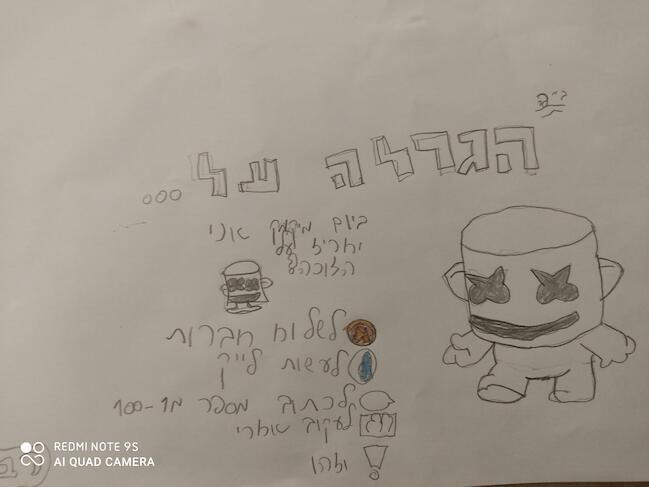 ב"ה
הגרלה על...
ביום אני
על
הזוכה!
לשלוח חברות
לעשות לייק
לכתוב מספר מ1-100
לעקוב אחרי
וזהו
REDMI NOTE 9S
AI QUAD CAMERA